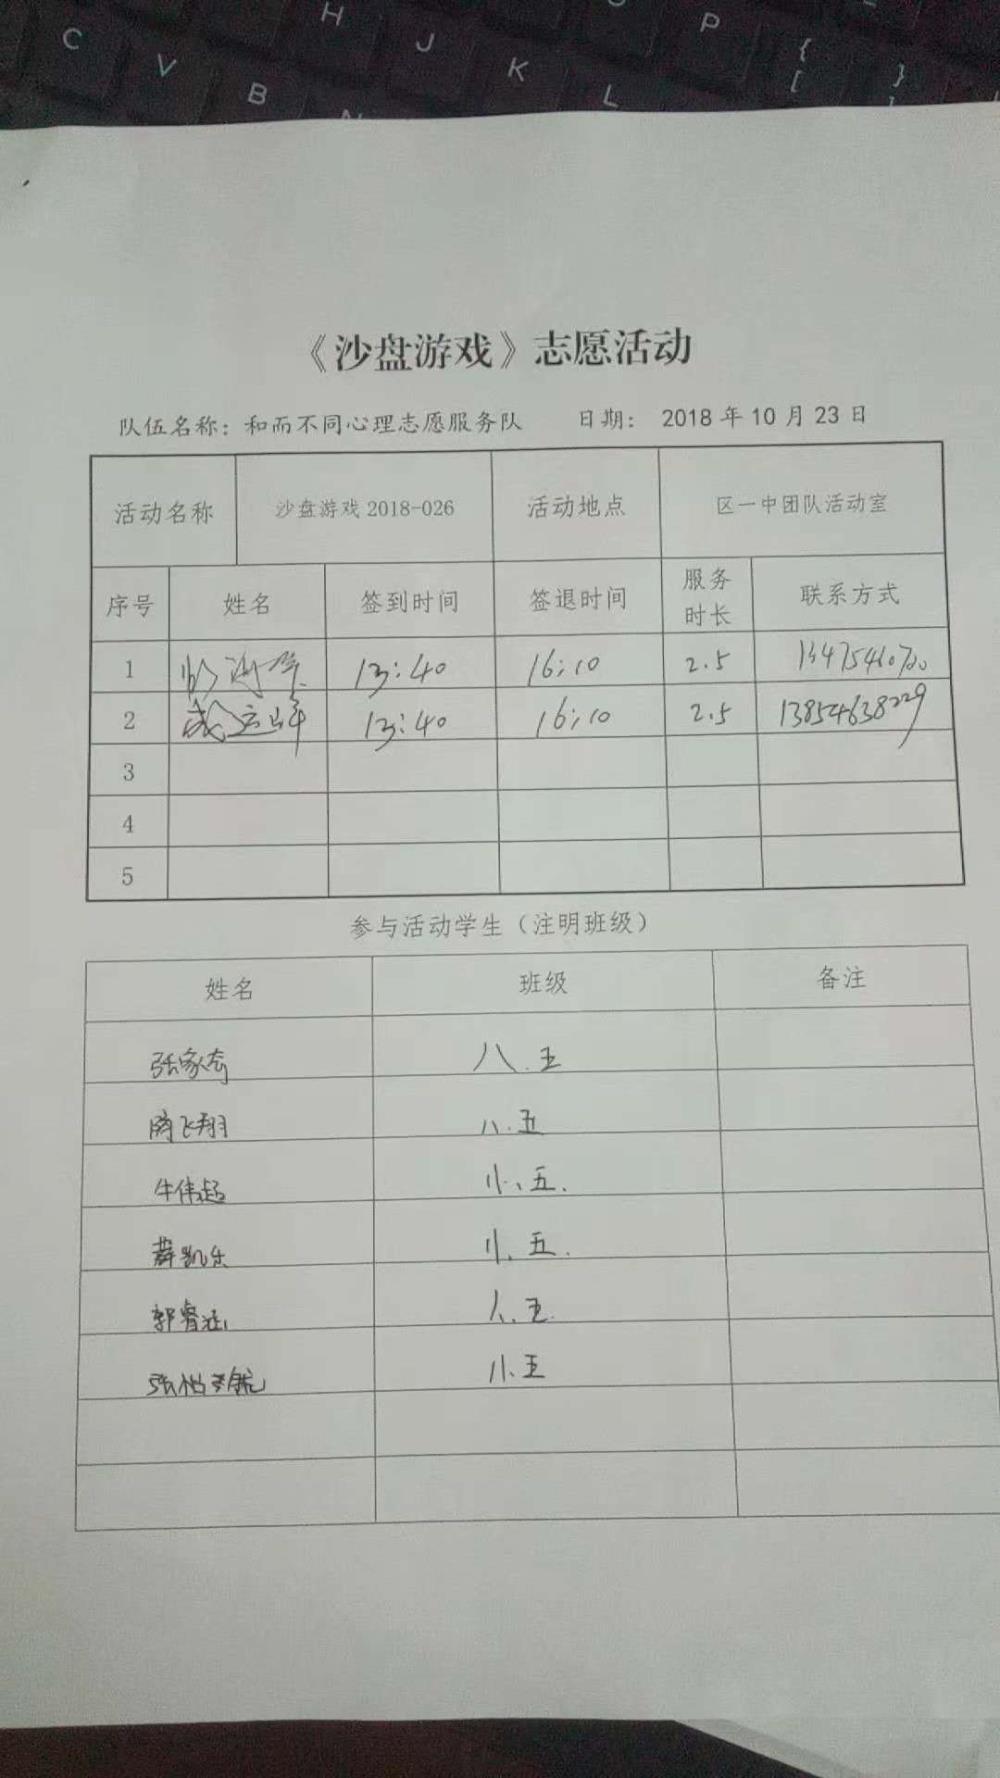 C V B H J K L P { [ } ]
《沙盘游戏》志愿活动
队伍名称：和而不同心理志愿服务队 日期： 2018 年 10 月 23 日
活动名称 沙盘游戏 2018-026 活动地点 区一中团队活动室
序号 姓名 签到时间 签退时间 服务时长 联系方式
1 13:40 16:10 2.5
2 13:40 16:10 2.5 13854638229
3
4
5
参与活动学生（注明班级）
姓名 班级 备注
张家态 八.五
八.五
牛伟超 八、五.
薛凯乐 八、五.
郭睿涵 八、五.
八、五